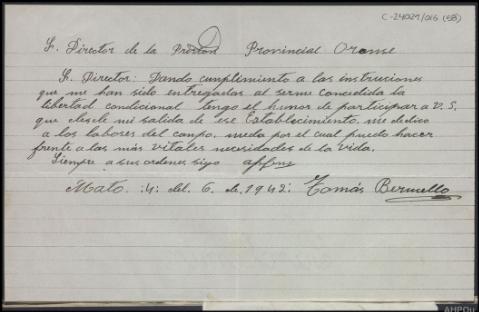 C-24027/016 (58)
Sr. Director de la Prision Provincial Orense
Sr. Director: Dando cumplimiento a las instruciones
que me han sido entregadas al serme concedida la
libertad condicional tengo el honor de participar a V. S.
que desde mi salida de ese Establecimiento, me dedico
a los labores del campo, medo por el cual puedo hacer
frente a las más vitales necesidades de la vida.
Siempre a sus ordenes sigo affmo
Mato :4: del 6 de 1942: Tomás Bermello
AHPOu